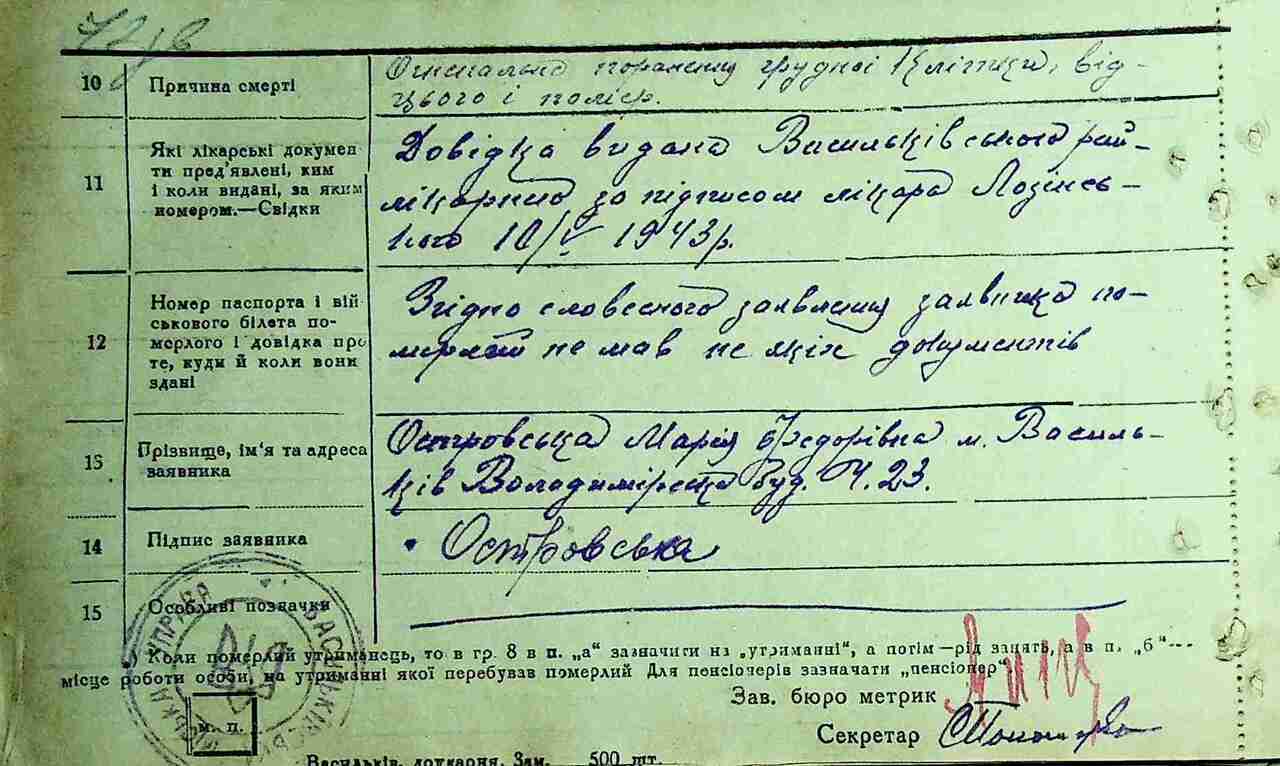 10 Причина смерті
поранення грудної клітки, від
цього і
11 Які лікарські докумен
ти пред'явлені, ким
і коли видані, за яким
номером.—Свідки
Довідка видана Васильківського рай-
лікарнею за підписом лікаря Лозінсь-
кого 10/V 1943р.
12 Номер паспорта і вій
ськового білета по-
мерлого і довідка про
те, куди й коли вони
здані
Згідно словесного заявлення заявника по-
мерлий не мав не яких документів
13 Прізвище, ім'я та адреса
заявника
Островська Марія Федорівна м. Василь-
ків Володимірська буд. Ч. 23.
14 Підпис заявника
Островська
15 Особливі позначки
УПРАВА ВАСИЛЬКІВСЬКА МІСЬКА
*) Коли померлий утриманець, то в гр. 8 в п. „а" зазначити на „утриманні", а потім—рід занять, а в п. „б"---
місце роботи особи, на утриманні якої перебував померлий Для пенсіочерів зазначати „пенсіонер"
Зав. бюро метрик
м. п.
Секретар
Васильків, доткарня. Зам. 500 шт.